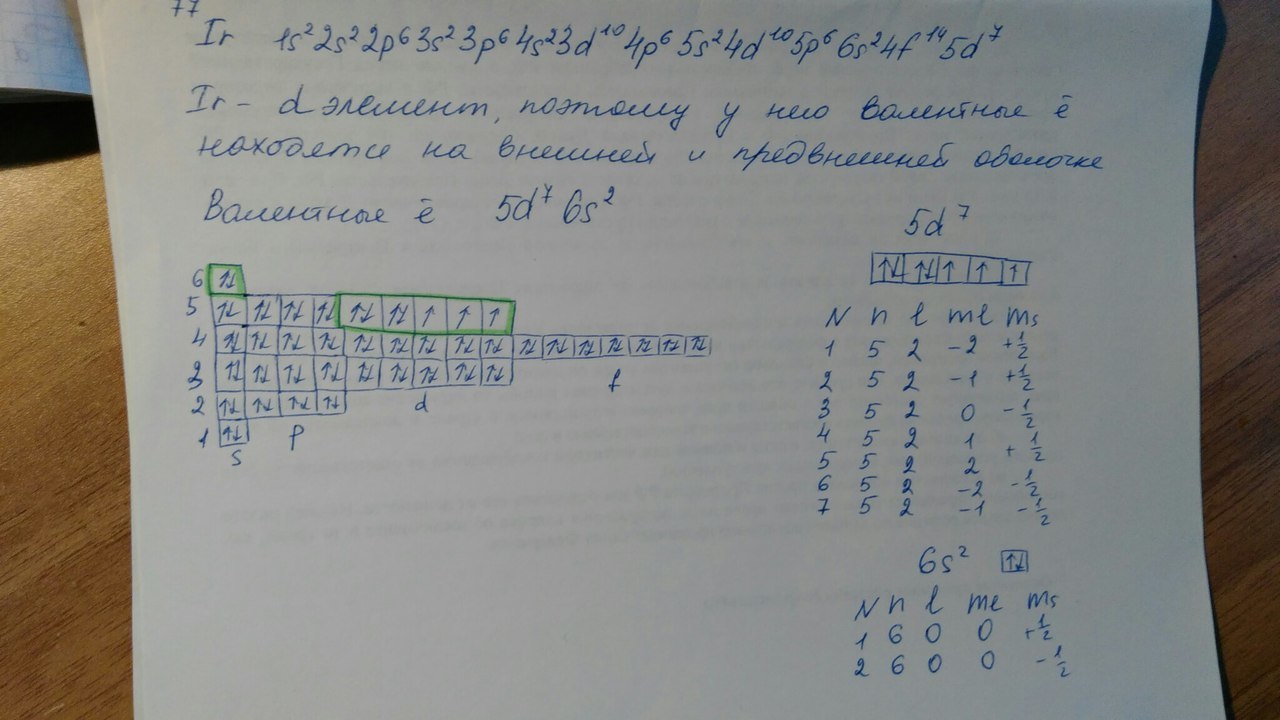 77
Ir 1s²2s²2p⁶3s²3p⁶4s²3d¹⁰4p⁶5s²4d¹⁰5p⁶6s²4f¹⁴5d⁷
Ir - d элемент, поэтому у него валентные ē
находятся на внешней и предвнешней оболочке
Валентные ē 5d⁷ 6s²
6 ↑↓
5 ↑↓ ↑↓ ↑↓ ↑↓ ↑↓ ↑↓ ↑ ↑ ↑
4 ↑↓ ↑↓ ↑↓ ↑↓ ↑↓ ↑↓ ↑↓ ↑↓ ↑↓ ↑↓ ↑↓ ↑↓ ↑↓ ↑↓ ↑↓ ↑↓
3 ↑↓ ↑↓ ↑↓ ↑↓ ↑↓ ↑↓ ↑↓ ↑↓ ↑↓ f
2 ↑↓ ↑↓ ↑↓ ↑↓ d
1 ↑↓ p
s
5d⁷
↑↓ ↑↓ ↑ ↑ ↑
N n l ml ms
1 5 2 -2 +1/2
2 5 2 -1 +1/2
3 5 2 0 -1/2
4 5 2 1 + 1/2
5 5 2 2
6 5 2 -2 -1/2
7 5 2 -1 -1/2
6s² ↑↓
N n l ml ms
1 6 0 0 +1/2
2 6 0 0 -1/2